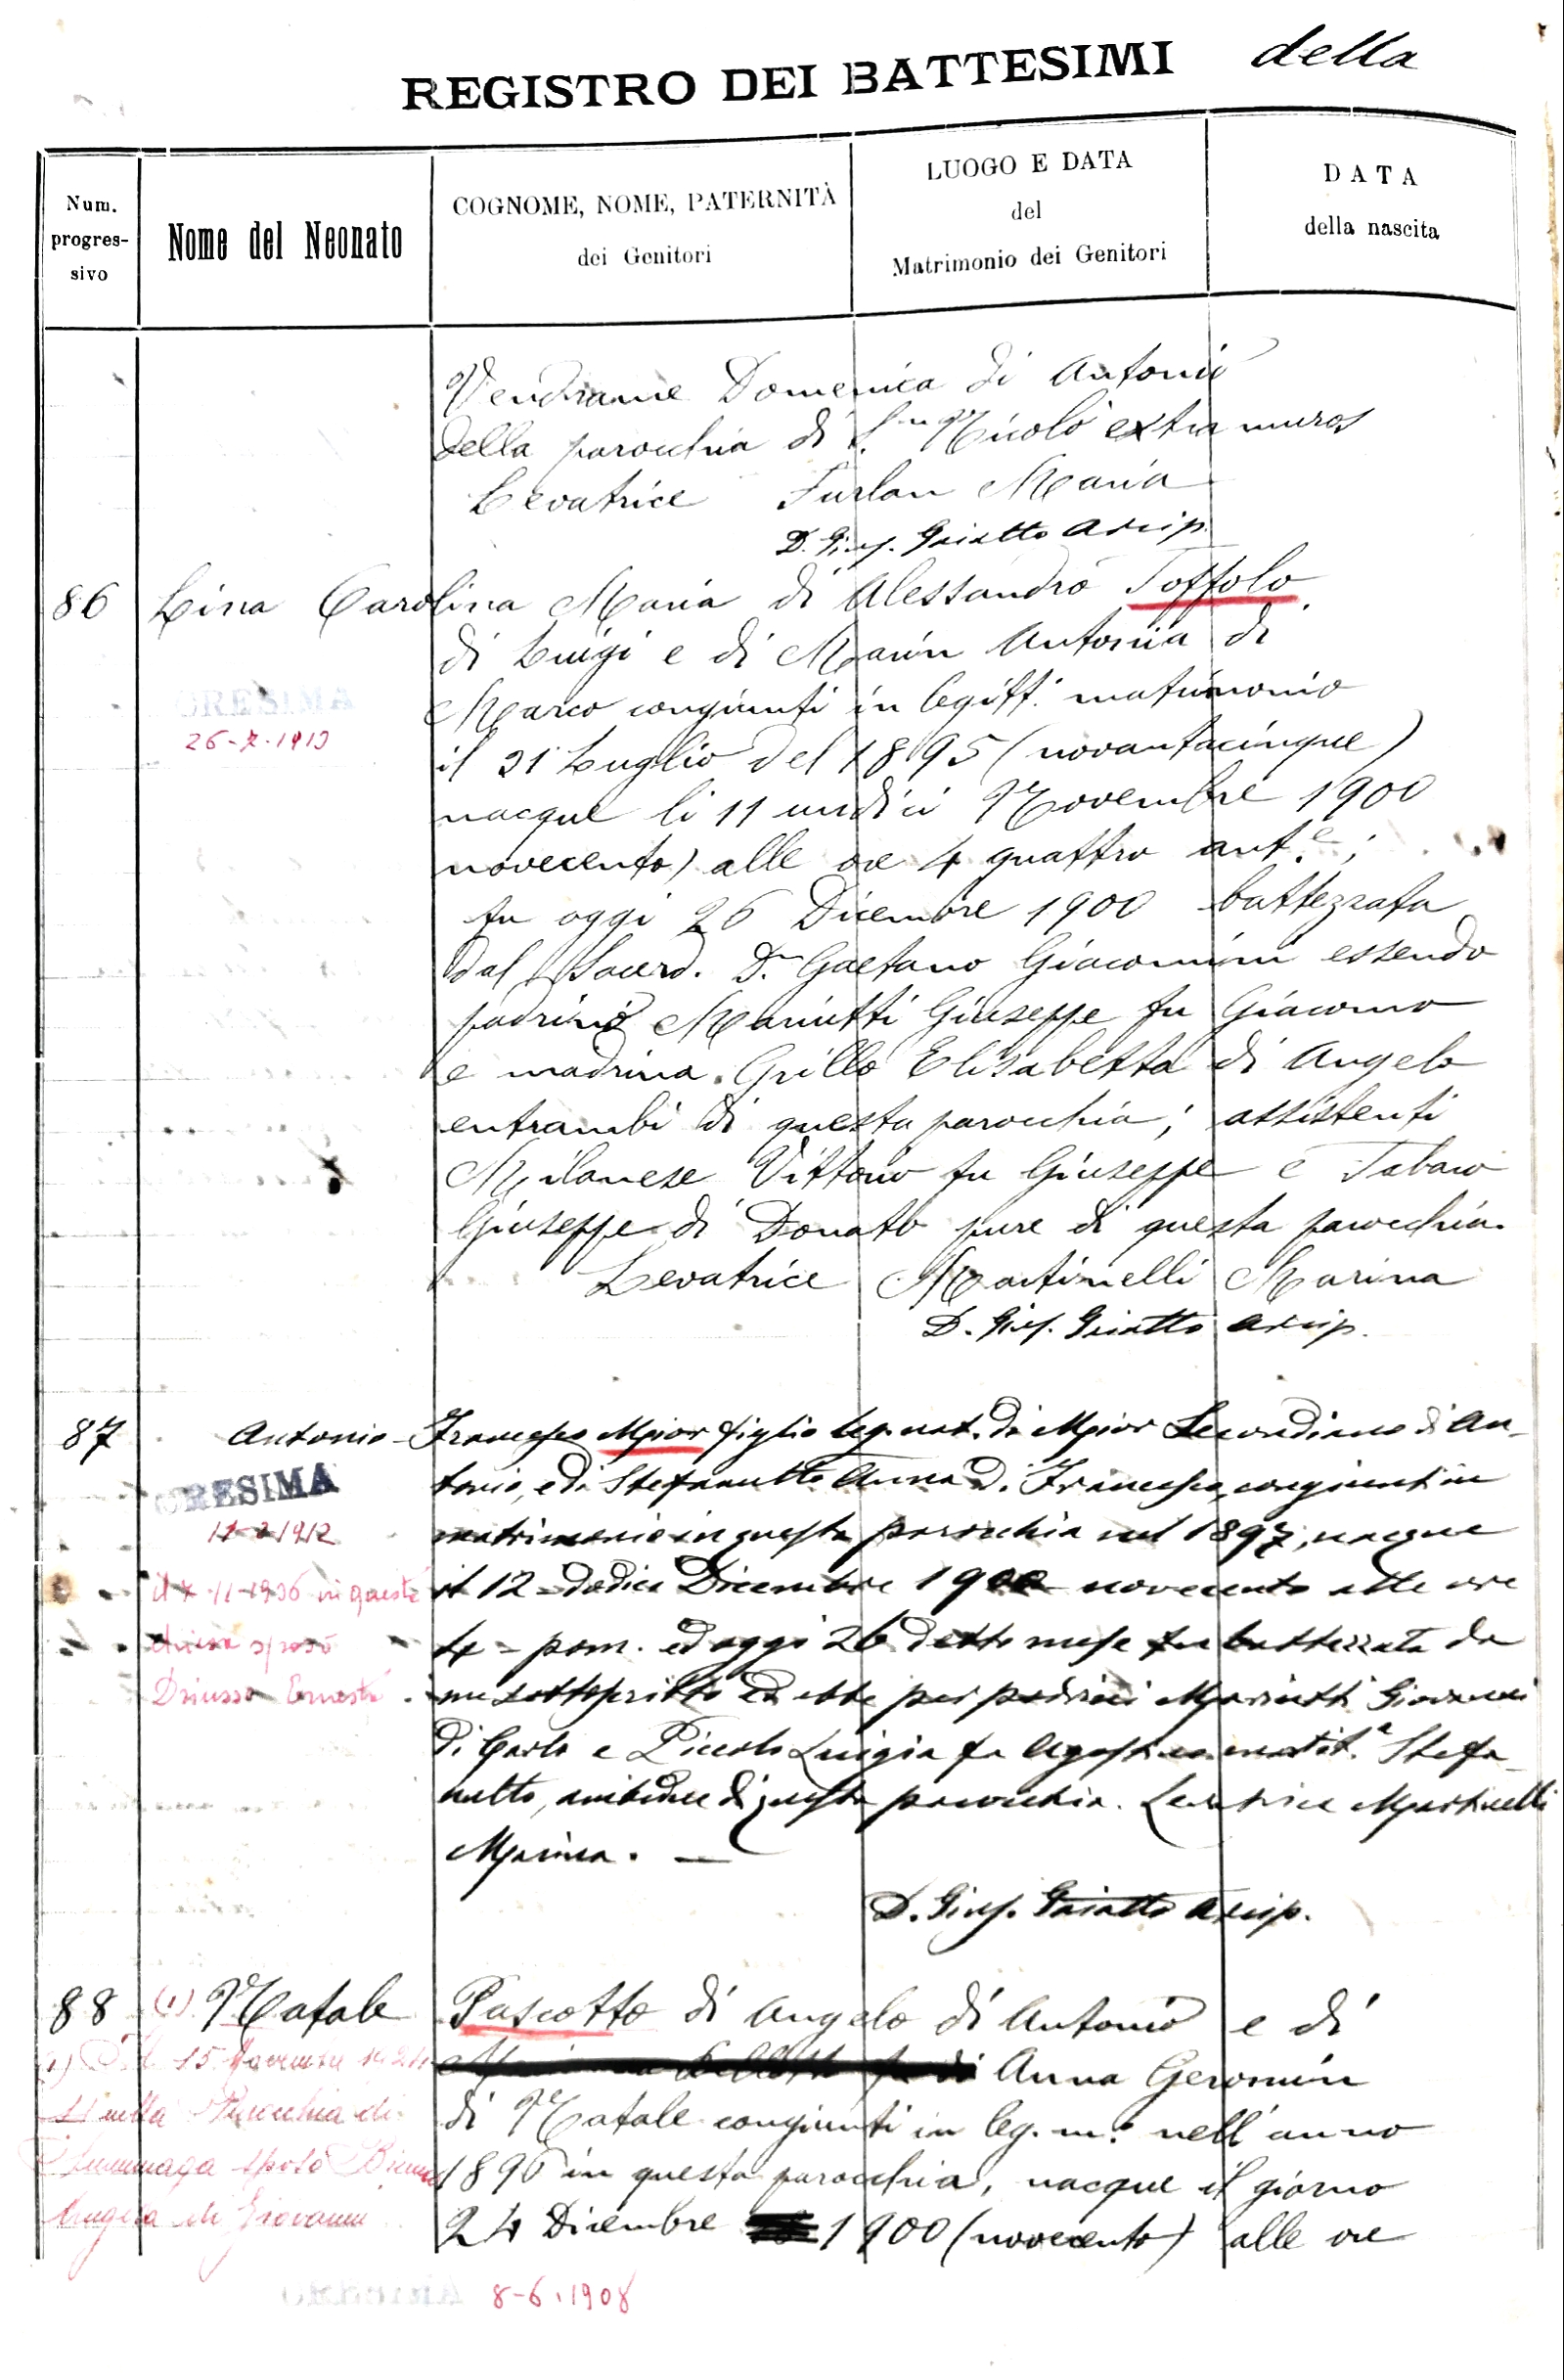 REGISTRO DEI BATTESIMI della
Num.
progres-
sivo
Nome del Neonato
COGNOME, NOME, PATERNITÀ
dei Genitori
LUOGO E DATA
del
Matrimonio dei Genitori
DATA
della nascita
Vendrame Domenica di Antonio
della parocchia di S.n Nicolò extra muros
Levatrice Furlan Maria
D. Gius. Gaiatto Arcip.
86 Lina Carolina Maria di Alessandro Toffolo
di Luigi e di Marin Antonia di
Marco congiunti in legitt. matrimonio
CRESIMA
il 31 Luglio del 1895 (novantacinque)
nacque li 11 undici Novembre 1900
novecento) alle ore 4 quattro ant.e;
fu oggi 26 Dicembre 1900 battezzata
dal Sacerd. D.n Gaetano Giacomini essendo
padrino Mariutti Giuseppe fu Giacomo
e madrina Grillo Elisabetta di Angelo
entrambi di questa parocchia; assistenti
Milanese Vittorio fu Giuseppe e Tabaro
Giuseppe di Donato pure di questa parocchia.
Levatrice Martinelli Marina
D. Gius. Gaiatto Arcip.
87 Antonio-Francesco Mior figlio leg. nat. di Mior Secondiano di An-
tonio, e di Stefanutto Anna di Francesco, congiunti in
CRESIMA
matrimonio in questa parocchia nel 1897, nacque
il 12 - dodici Dicembre 1900 novecento alle ore
4 - pom. ed oggi 26 detto mese fu battezzato da
me sottoscritto ed ebbe per padrini Mariutti Giovanni
di Carlo e Piccolo Luigia fu Agostino Stefa-
nutto, ambidue di questa parocchia. Levatrice Martinelli
Marina. —
in questa
chiesa sposò
D. Gius. Gaiatto Arcip.
88 (1) Natale Pascotto di Angelo di Antonio e di
Anna Geromin
di Natale congiunti in leg. m.o nell'anno
1896 in questa parocchia, nacque il giorno
24 Dicembre 1900 (novecento) alle ore
nella Parocchia di
sposò
Angela di Giovanni
8-6-1908